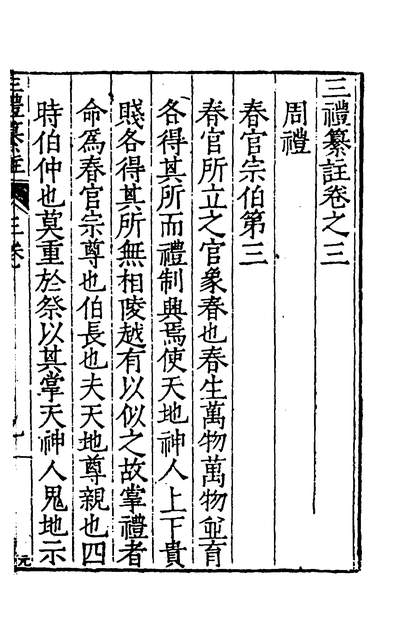 三禮纂註卷之三
周禮
春官宗伯第三
春官所立之官象春也春生萬物萬物並育
各得其所而禮制興焉使天地神人上下貴
賤各得其所無相陵越有以似之故掌禮者
命為春官宗尊也伯長也夫天地尊親也四
時伯仲也莫重於祭以其掌天神人鬼地示
三禮纂註 三卷